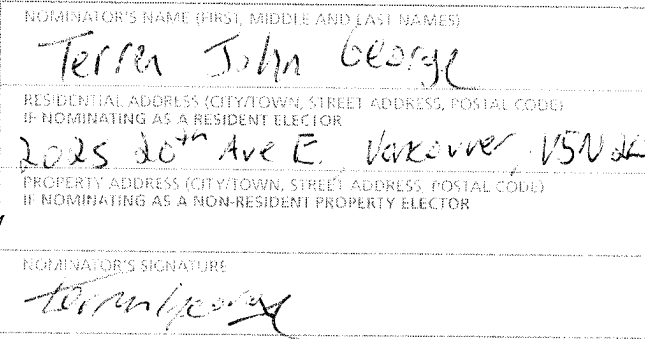 NOMINATOR'S NAME (FIRST, MIDDLE AND LAST NAMES)
John George
RESIDENTIAL ADDRESS (CITY/TOWN, STREET ADDRESS, POSTAL CODE)
IF NOMINATING AS A RESIDENT ELECTOR
2025 20th Ave E. Vancouver, V5N
PROPERTY ADDRESS (CITY/TOWN, STREET ADDRESS, POSTAL CODE)
IF NOMINATING AS A NON-RESIDENT PROPERTY ELECTOR
NOMINATOR'S SIGNATURE